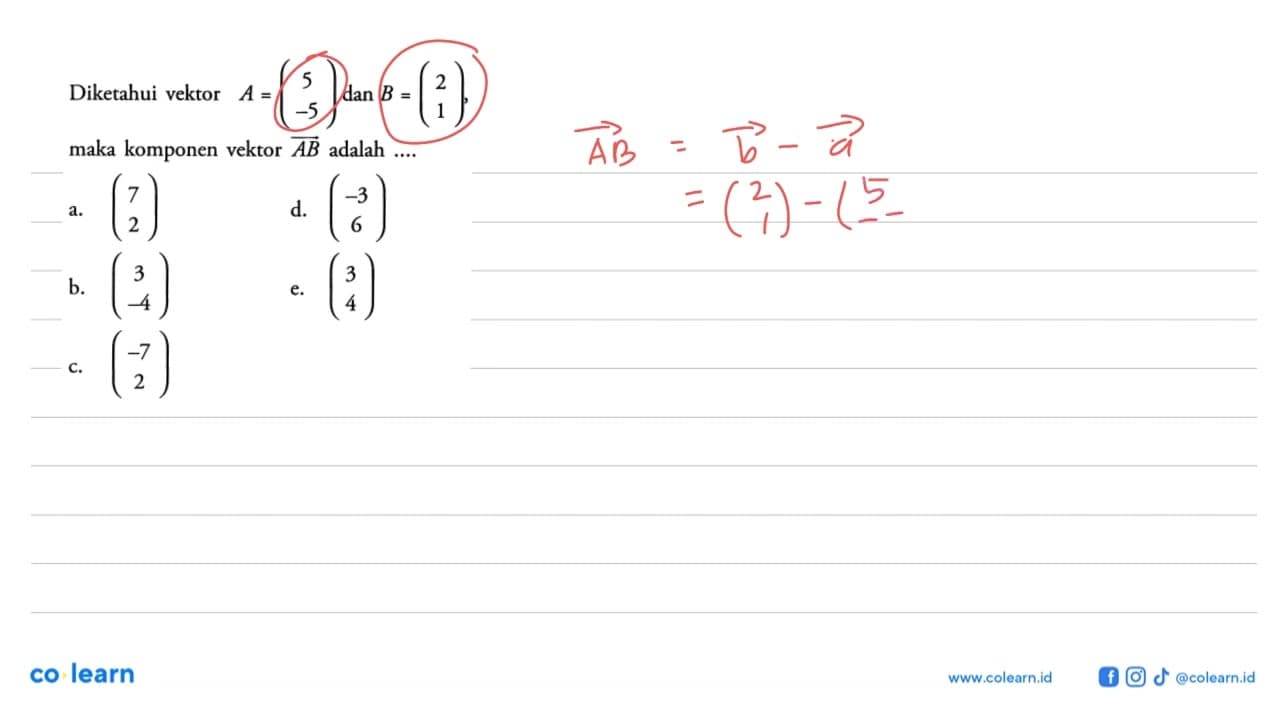 Diketahui vektor A = (5 -5) dan B = (2 1),
maka komponen vektor AB adalah ....
a. (7 2)
b. (3 -4)
c. (-7 2)
d. (-3 6)
e. (3 4)
AB = b - a
= (2 1) - (5 -
co learn
www.colearn.id
@colearn.id